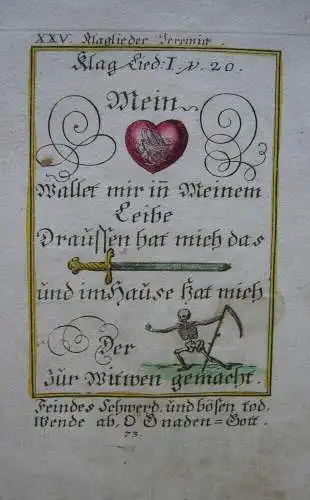 XXV. Klaglieder Jeremiæ.
Klag Lied: I v. 20.
Mein
Wallet mir in̄ Meinem
Leibe
Draussen hat mich das
und im Hause hat mich
Der
zur Witwen gemacht.
Feindes Schwerd, und bösen tod,
Wende ab, O Gnaden=Gott.
73.